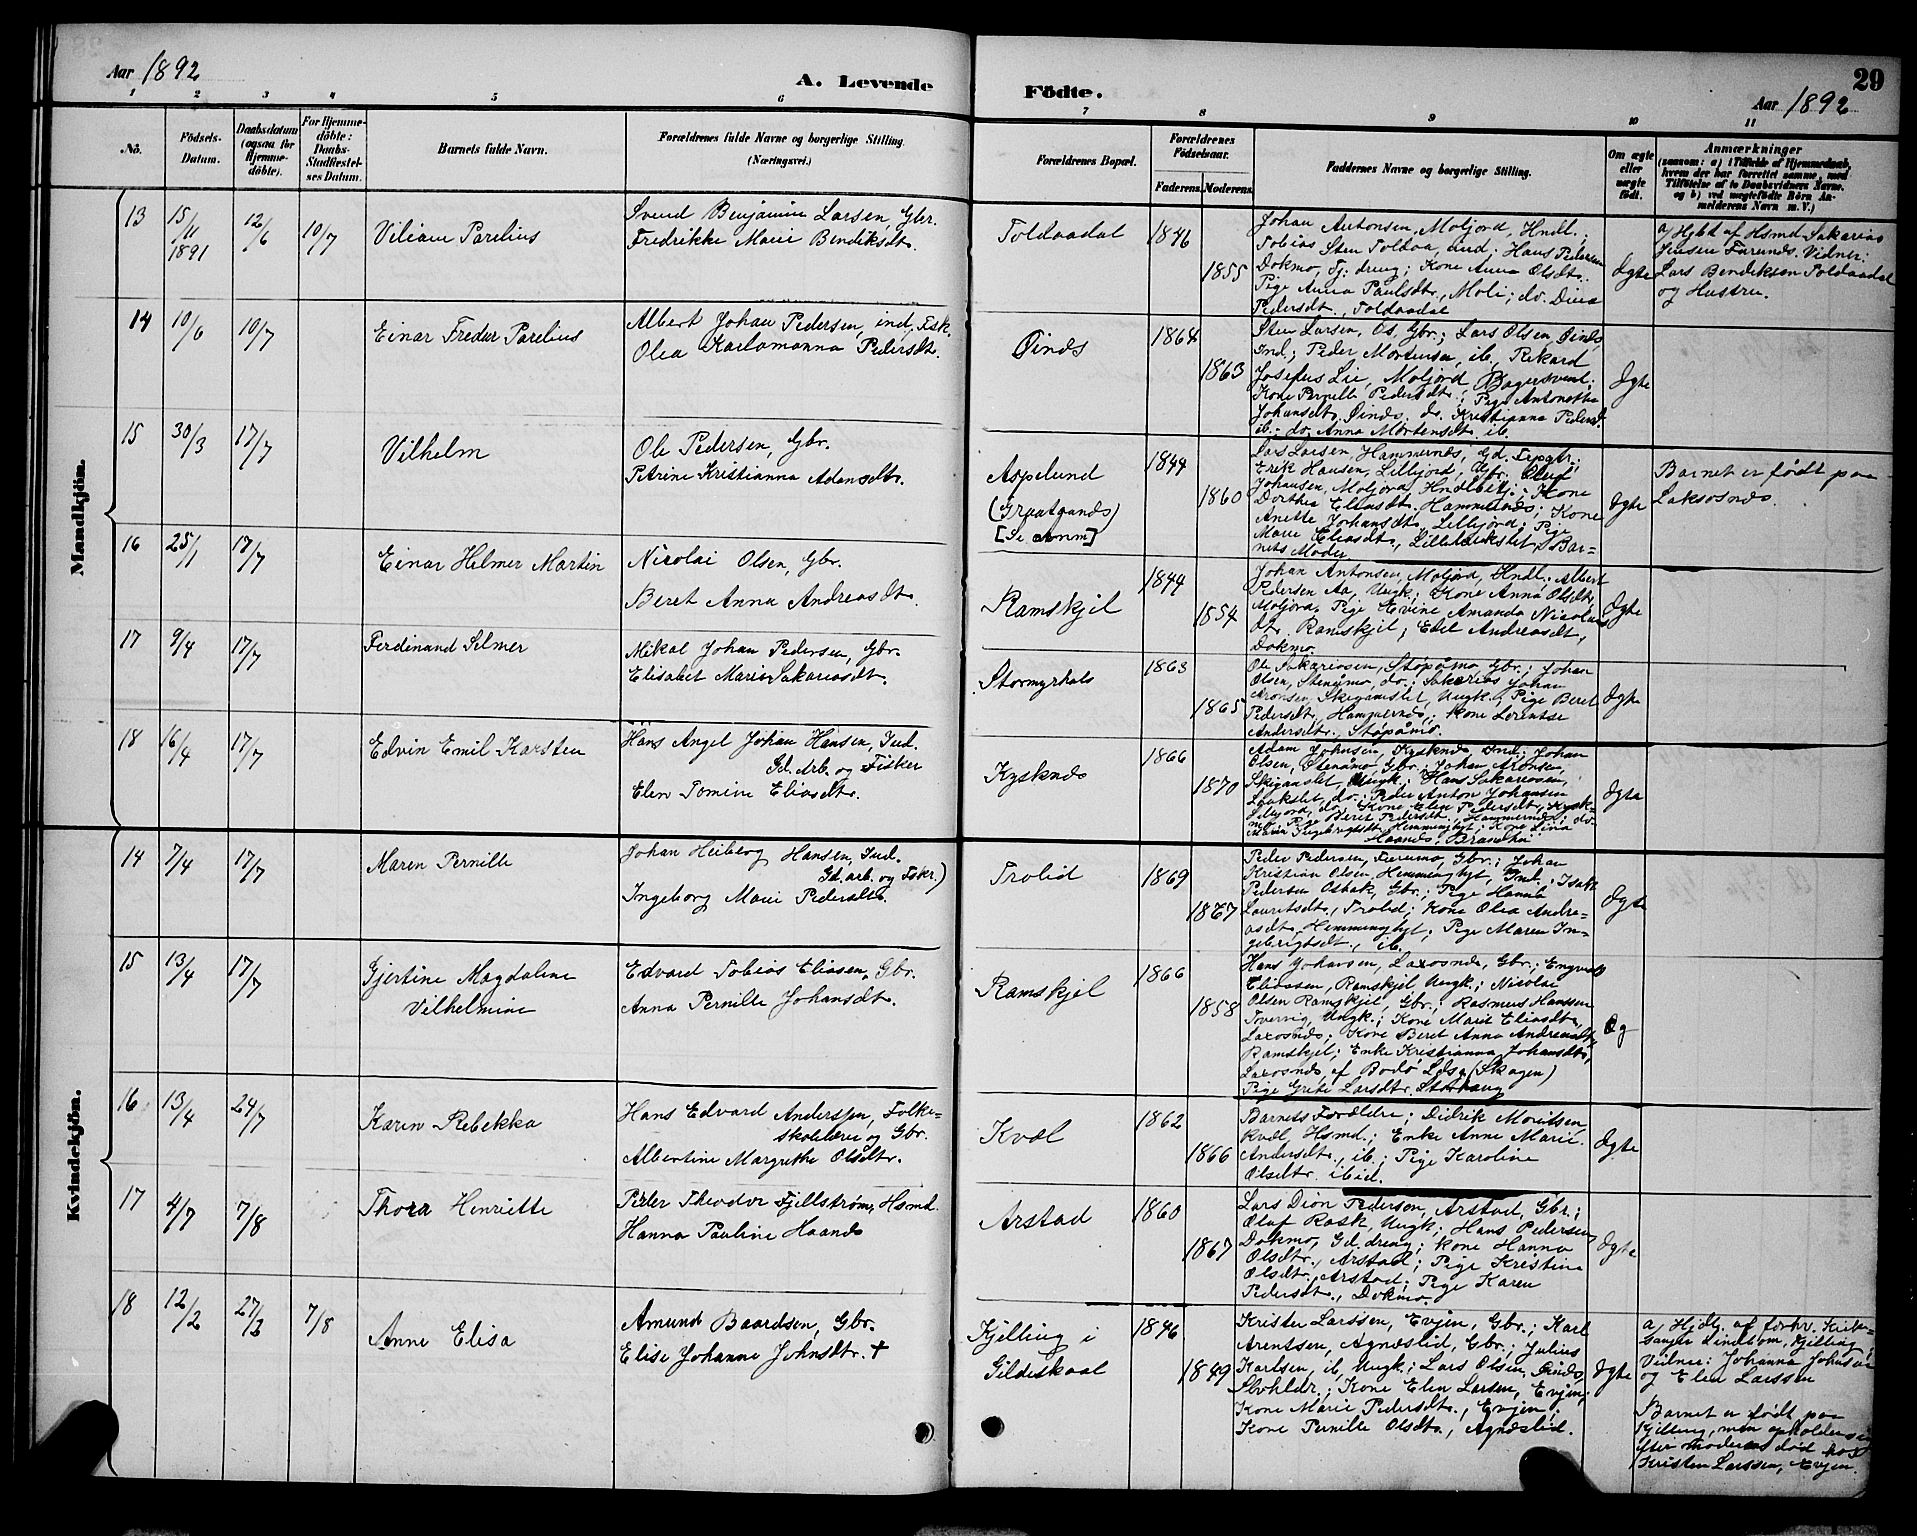 Aar 1892
A. Levende
Födte.
29
Aar 1892
1 2 3 4 5 6 7 8 9 10 11
No.
Födsels-Datum.
Daabsdatum (ogsaa for Hjemme-döbte).
For Hjemme-döbte: Daabs-Stadfæstel-ses Datum.
Barnets fulde Navn.
Forældrenes fulde Navne og borgerlige Stilling.
(Næringsvei.)
Forældrenes Bopæl.
Forældrenes Födselsaar.
Faderens. Moderens.
Faddernes Navne og borgerlige Stilling.
Om ægte eller uægte födt.
Anmærkninger
(saasom: a) i Tilfælde af Hjemmedaab, hvem der har forrettet samme, med Tilföielse af to Daabsvidners Navne, og b) ved uægtefödte Börn An-melderens Navn m. V.)
Mandkjön.
13 15/11 1891 12/6 10/7 Viliam Parelius
Svend Benjamin Larsen, Gbr.
Fredrikke Marie Bendiksdt.
Toldaadal 1846 1855
Johan Antonsen, Moljord, Hndl.;
Tobias Sten Toldaa, ind; Hans Pedersen
Dokmo, Tj. dreng; Kone Anna Olsdt.
Pige Anna Paulsdtr., Moli; do. Dina
Pedersdt., Toldaadal
Ægte
a/ Hjbd af Hsmd Sakarias
Jensen Vidner:
Lars Bendiksen Toldaadal
og Hustru.
14 10/6 10/7 Einar Fredur Parelius
Albert Johan Pedersen, ind, Fisk.
Olea Karlamanna Pedersdt.
Øinds 1864 1863
Sten Larsen, Os, Gbr.; Lars Olsen, Øinds,
Ind.; Peder Mortensen, ib., Rekard
Josefus Lie, Moljord, Bagersvend;
Kone Pernille Pedersdt.; Pige Antonette
Johansdt. Øinds, do. Kristianna Pedersd.
ib.; do. Anna Mortensdt. ib.
Ægte
15 30/3 17/7 Vilhelm
Ole Pedersen, Gbr.
Petrine Kristianna Adamsdtr.
Aspelund
(Graataands)
[Se Anm]
1844 1860
Lars Larsen, Hammernds, Gd.
Erik Hansen, Lillejord, Gbr. Oluf
Johansen, Moljord, Hndlbetj.; Kone
Dorthea Eliasdt. Hammernds; Kone
Anette Johansdt, Lillejord; Pige
Marie Eliasdt., Bar-
nets Moder
Ægte
Barnet er født paa
Laksosnds.
16 25/1 17/7 Einar Helmer Martin
Nicolai Olsen, Gbr.
Beret Anna Andreasdt.
Ramskjel 1844 1854
Johan Antonsen, Moljord, Hndl.; Albert
Pedersen Aa, Ungk.; Kone Anna Olsdtr,
Moljord, Pige Evine Amanda Nicolais
dt. Ramskjel; Edel Andreasdt,
Dokmo.
Ægte
17 9/4 17/7 Ferdinand Selmer
Mikal Johan Pedersen, Gbr.
Elisabet Marie Sakariasdt.
Stormyrhals 1863 1865
Ole Sakariasen, Støpåmo, Gbr.; Johan
Olsen, Stenåmo, do.; Sakarias Johan
Aronsen, Skeganslet, Ungk, Pige Beret
Pedersdt., Hammernds; Kone Lorentse
Andersdtr., Støpåmo.
Ægte
18 16/4 17/7 Edvin Emil Karsten
Hans Angel Johan Hansen, Ind.
Gd. Arb. og Fisker
Elen Tomine Eliasdtr.
Kysknds 1866 1870
Adam Johnsen, Kysknds, Ind.; Johan
Olsen, Stenåmo, Gbr.; Johan Aronsen,
Skiganslet, Ungk.; Hans Sakariasen,
Laukslet, do.; Peder Anton Johansen
Lillejord, do.; Kone Elen Pedersdt., Kysk-
nds; Pige Beret Pedersdt., Hammernds; do.
Maria Ingebrigtsdt., Hemminghyt; Kone Lina
Haands,
Ægte
Kvindekjön.
14 7/4 17/7 Maren Pernille
Johan Heiberg Hansen, Ind.
Gd. arb. og Fiskr.)
Ingeborg Marie Pedersdtr.
Trolid 1869 1867
Peder Pedersen, Gbr.; Johan
Kristian Olsen, Hemminghyt, Ind.; Isak
Pedersen Osbak, Gbr.; Pige Hanna
Lauritsdt., Trolid; Kone Olea Andre-
asdt, Hemminghyt; Pige Maren In-
gebrigtsdt., ib.
Ægte
15 13/4 17/7 Gjertine Magdalene
Vilhelmine
Edvard Tobias Eliasen, Gbr.
Anna Pernille Johansdt.
Ramskjel 1866 1858
Hans Johansen, Laxosnds, Gbr.; Engvald
Eliassen, Ramskjel Ungk.; Nicolai
Olsen Ramskjel, Gbr.; Rasmus Hanssen
Tverrvig, Ungk.; Kone Marit Eliasdt.
Laxosnds; Kone Beret Anna Andreasdt.
Ramskjel; Enke Kristianna Johansdt.
Laxosnds, af Bodø Lds. (Skagen)
Pige Grete Larsdtr. Storhaug
Æg
16 13/4 24/7 Karen Rebekka
Hans Edvard Anderssen, Folke-
skolelærer og Gbr.
Albertine Margrethe Olsdtr.
Kvæl 1862 1866
Barnets Forældre; Didrik Moritsen,
Kvæl, Hsmd.; Enke Anne Marie
Andersdtr., ib.; Pige Karoline
Olsdtr. ibid.
Ægte
17 4/7 7/8 Thora Henriette
Peder Theodor Fjellstrøm, Hsmd.
Hanna Pauline Haands
Arstad 1860 1867
Lars Dion Pedersen, Arstad, Gbr.;
Olaf Rask, Ungk.; Hans Pedersen,
Dokmo, Gd. dreng; Kone Hanna
Olsdtr., Arstad; Pige Kristine
Olsdt., Arstad; Pige Karen
Pedersdt., Dokmo.
Ægte
18 12/2 27/3 7/8 Anne Elisa
Amund Baardsen, Gbr.
Elise Johanne Johnsdtr. †
Kjelling i
Gildeskaal
1846 1849
Krister Larssen, Evjen, Gbr.; Karl
Arentssen, Agnæslid, Gbr.; Julius
Karlsen, ib, Ungk.; Lars Olsen, Øinds,
Kone Elen Larsen, Evjen;
Kone Marie Pedersdtr., Evjen;
Kone Pernille Olsdtr., Agnæslid.
Ægte
a/ Hjdb. af forhv. Kirke-
sanger Lindbom, Kjelling;
Vidner: Johanna Johnsen
og Elen Larssen
Barnet er født paa
Kjelling, men opholder sig
efter moderens død hos
Kristen Larssen, Evjen.